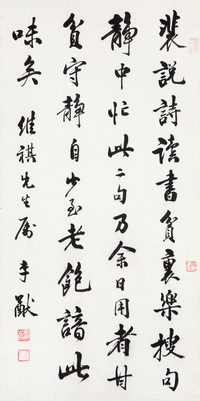 裴說詩讀書貧裏樂搜句
靜中忙此二句乃余日用者甘
貧守靜自少至老飽諳此
味矣 維祺先生属 李猷